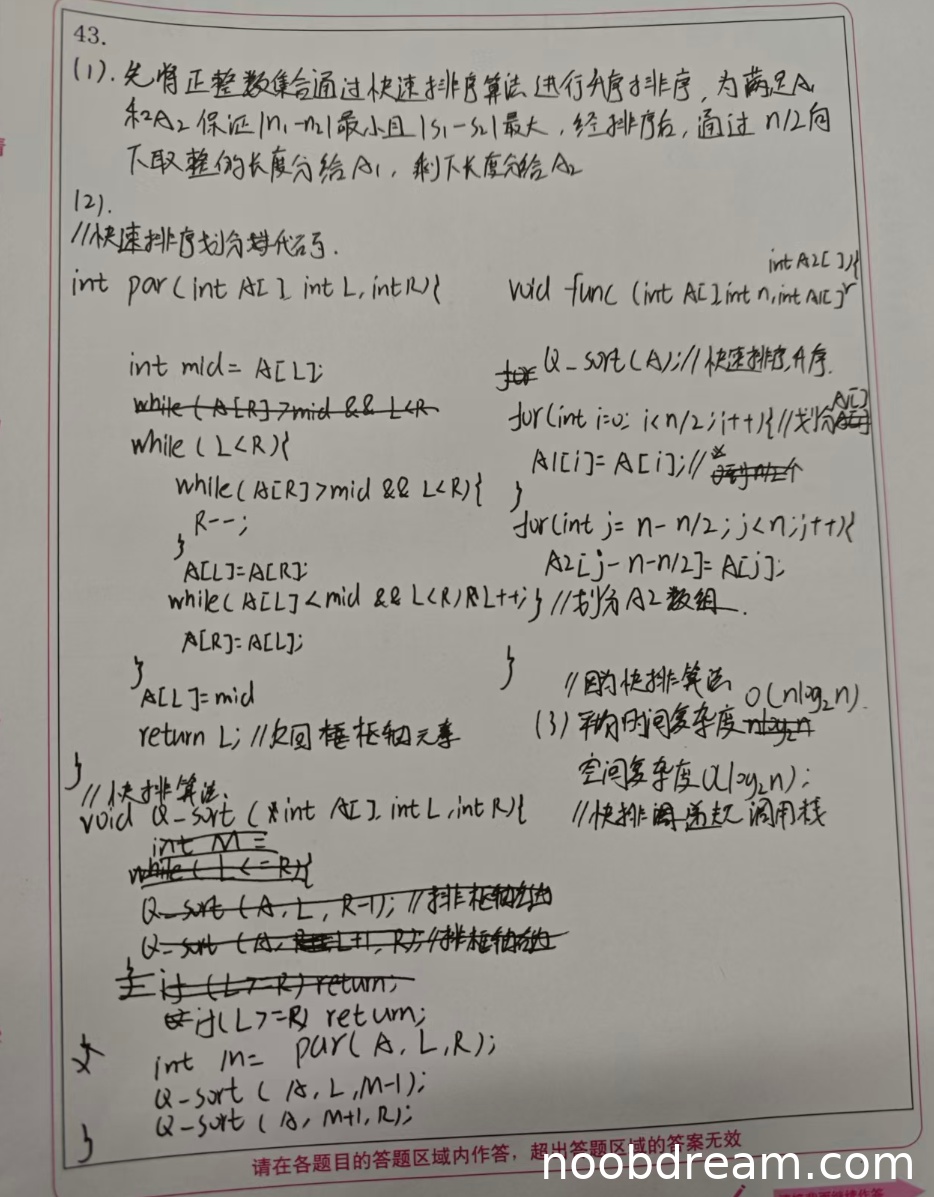 43.
(1). 先将正整数集合通过快速排序算法进行升序排序，为满足A1
和A2 保证|n1-n2|最小且|s1-s2|最大，经排序后，通过 n/2向
下取整的长度分给A1，剩下长度分给A2
(2).
//快速排序划分代码.
int par(int A[], int L, int R){
int mid = A[L];
while (A[R]>mid && L<R
while (L<R){
while(A[R]>mid && L<R){
R--;
}
A[L]=A[R];
while(A[L]<mid && L<R) L++;
A[R]=A[L];
}
A[L]=mid
return L; //返回枢轴元素
}
//快排算法.
void Q-sort (int A[], int L, int R){
int M =
while( L<=R){
Q-sort (A, L, R-1); //排枢轴左
Q-sort (A, L+1, R); //排枢轴右
if (L>=R) return;
if(L>=R) return;
int m= par(A, L, R);
Q-sort (A, L, M-1);
Q-sort (A, M+1, R);
}
int A2[]){
void func (int A[], int n, int A1[],
for Q-sort(A); //快速排序升序.
for(int i=0; i<n/2; i++){ //划分A1[]
A1[i]=A[i]; //
}
for(int j= n-n/2; j<n; j++){
A2[j-n-n/2]=A[j];
} //划分A2数组.
}
//因为快排算法
(3) 平均时间复杂度 nlog2n O(nlog2n).
空间复杂度O(log2n);
//快排 递归 调用栈
请在各题目的答题区域内作答，超出答题区域的答案无效
noobdream.com